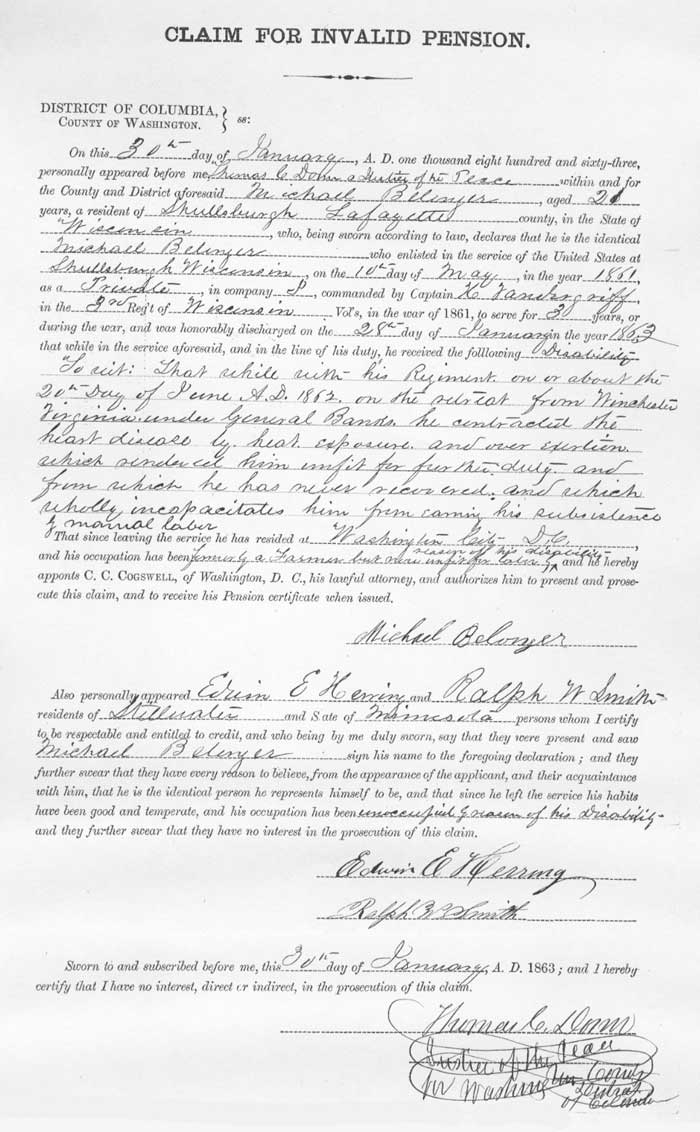 CLAIM FOR INVALID PENSION.
DISTRICT OF COLUMBIA,
COUNTY OF WASHINGTON. } ss:
On this 30th day of January, A. D. one thousand eight hundred and sixty-three,
personally appeared before me, Thomas C. Donn a Justice of the Peace within and for
the County and District aforesaid Michael Belonger, aged 21
years, a resident of Shullsburgh Lafayette county, in the State of
Wisconsin, who, being sworn according to law, declares that he is the identical
Michael Belonger who enlisted in the service of the United States at
Shullsburgh Wisconsin, on the 10th day of May, in the year 1861,
as a Private, in company, commanded by Captain H. Vandergriff,
in the 3rd Reg't of Wisconsin Vol's, in the war of 1861, to serve for 3 years, or
during the war, and was honorably discharged on the 28th day of January in the year 1863
that while in the service aforesaid, and in the line of his duty, he received the folllowing Disability
To wit: That while with his Regiment on or about the
20th Day of June A.D. 1862. on the retreat from Winchester
Virginia under General Banks. he contracted the
heart disease by heat exposure and over exertion
which rendered him unfit for further duty and
from which he has never recovered. and which
wholly incapacitates him from earning his subsistence
by manual labor
That since leaving the service he has resided at Washington City D.C.,
and his occupation has been formerly a Farmer but now unfit for labor by reason of his disability and he hereby
apponts C. C. COGSWELL, of Washington, D. C., his lawful attorney, and authorizes him to present and prose-
cute this claim, and to receive his Pension certificate when issued.
Michael Belonger
Also personally appeared Edwin E Herring and Ralph W Smith
residents of Stillwater and S ate of Minnesota persons whom I certify
to be respectable and entitled to credit, and who being by me duly sworn, say that they were present and saw
Michael Belonger sign his name to the foregoing declaration; and they
further swear that they have every reason to believe, from the appearance of the applicant, and their acquaintance
with him, that he is the identical person he represents himself to be, and that since he left the service his habits
have been good and temperate, and his occupation has been unoccupied by reason of his Disability
and they further swear that they have no interest in the prosecution of this claim.
Edwin E Herring
Ralph W Smith
Sworn to and subscribed before me, this 30th day of January, A. D. 1863; and I hereby
certify that I have no interest, direct or indirect, in the prosecution of this claim.
Thomas C. Donn
Justice of the Peace
for Washington County
District
of Columbia